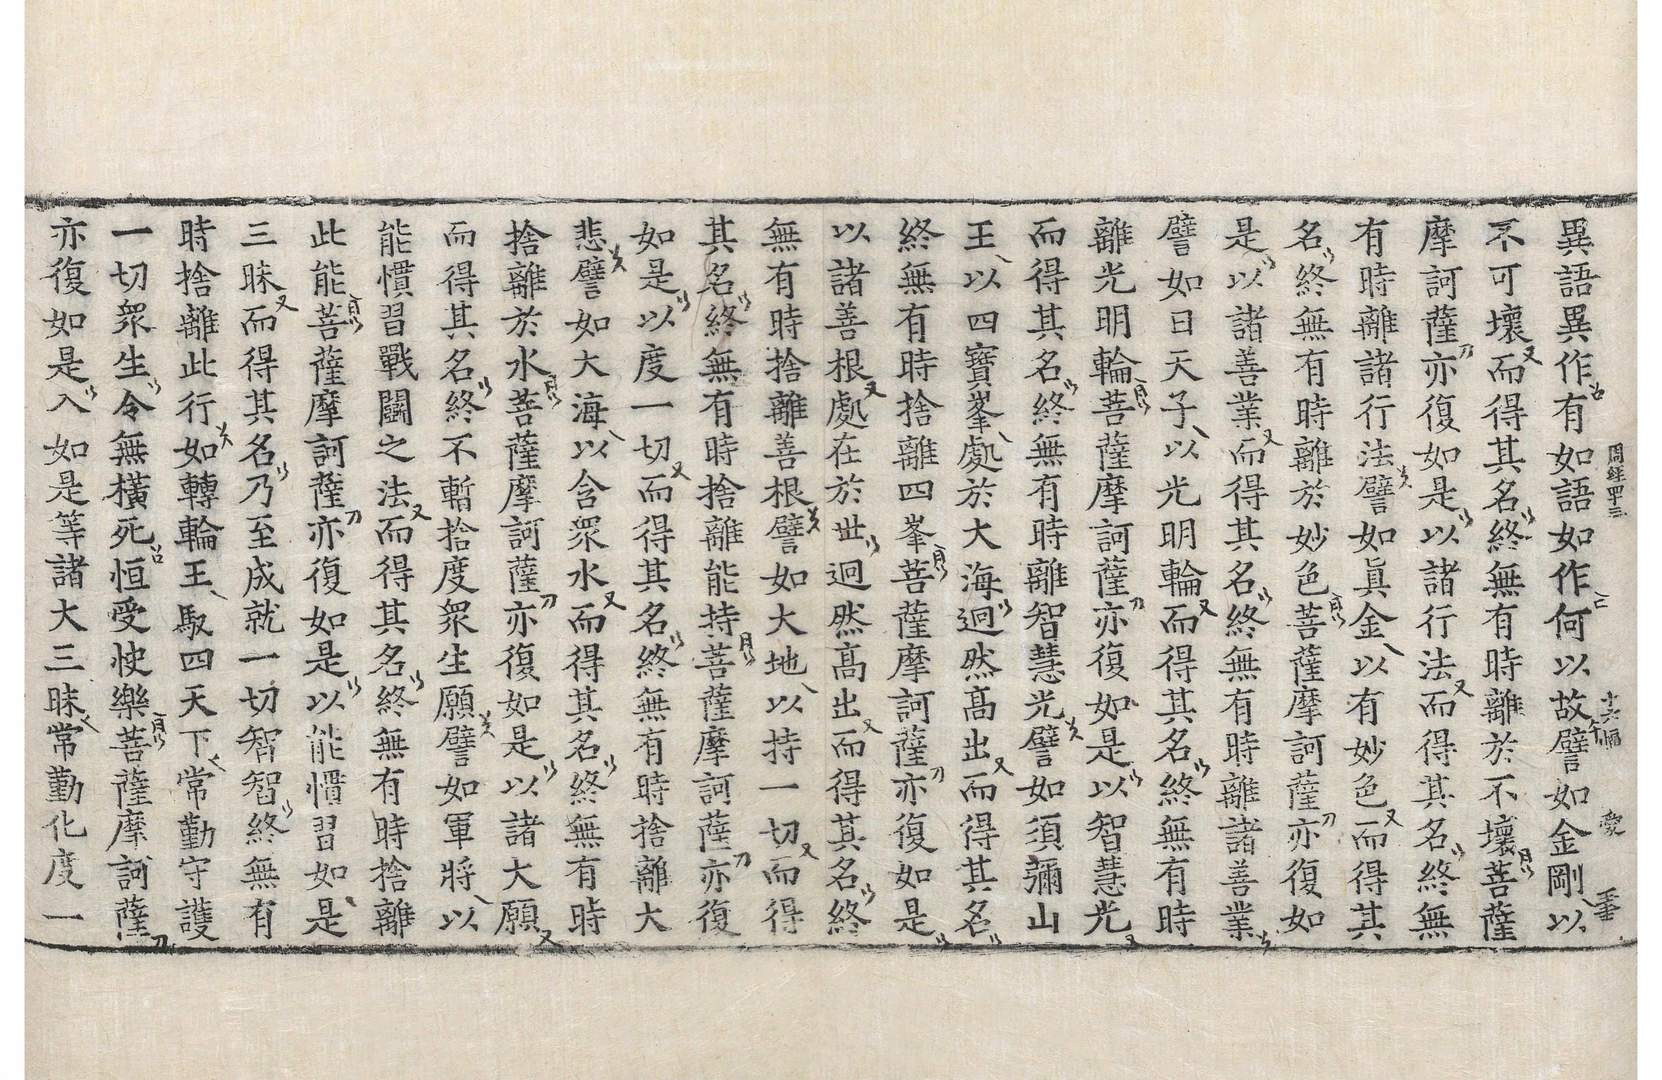 異語異作有如語如作何以故譬如金剛以
不可壞而得其名終無有時離於不壞菩薩
摩訶薩亦復如是以諸行法而得其名終無
有時離諸行法譬如眞金以有妙色而得其
名終無有時離於妙色菩薩摩訶薩亦復如
是以諸善業而得其名終無有時離諸善業
譬如日天子以光明輪而得其名終無有時
離光明輪菩薩摩訶薩亦復如是以智慧光
而得其名終無有時離智慧光譬如須彌山
王以四寶峯處於大海迥然高出而得其名
終無有時捨離四峯菩薩摩訶薩亦復如是
以諸善根處在於世迥然高出而得其名終
無有時捨離善根譬如大地以持一切而得
其名終無有時捨離能持菩薩摩訶薩亦復
如是以度一切而得其名終無有時捨離大
悲譬如大海以含眾水而得其名終無有時
捨離於水菩薩摩訶薩亦復如是以諸大願
而得其名終不暫捨度眾生願譬如軍將以
能慣習戰鬪之法而得其名終無有時捨離
此能菩薩摩訶薩亦復如是以能慣習如是
三昧而得其名乃至成就一切智智終無有
時捨離此行如轉輪王馭四天下常勤守護
一切眾生令無橫死恒受快樂菩薩摩訶薩
亦復如是入如是等諸大三昧常勤化度一